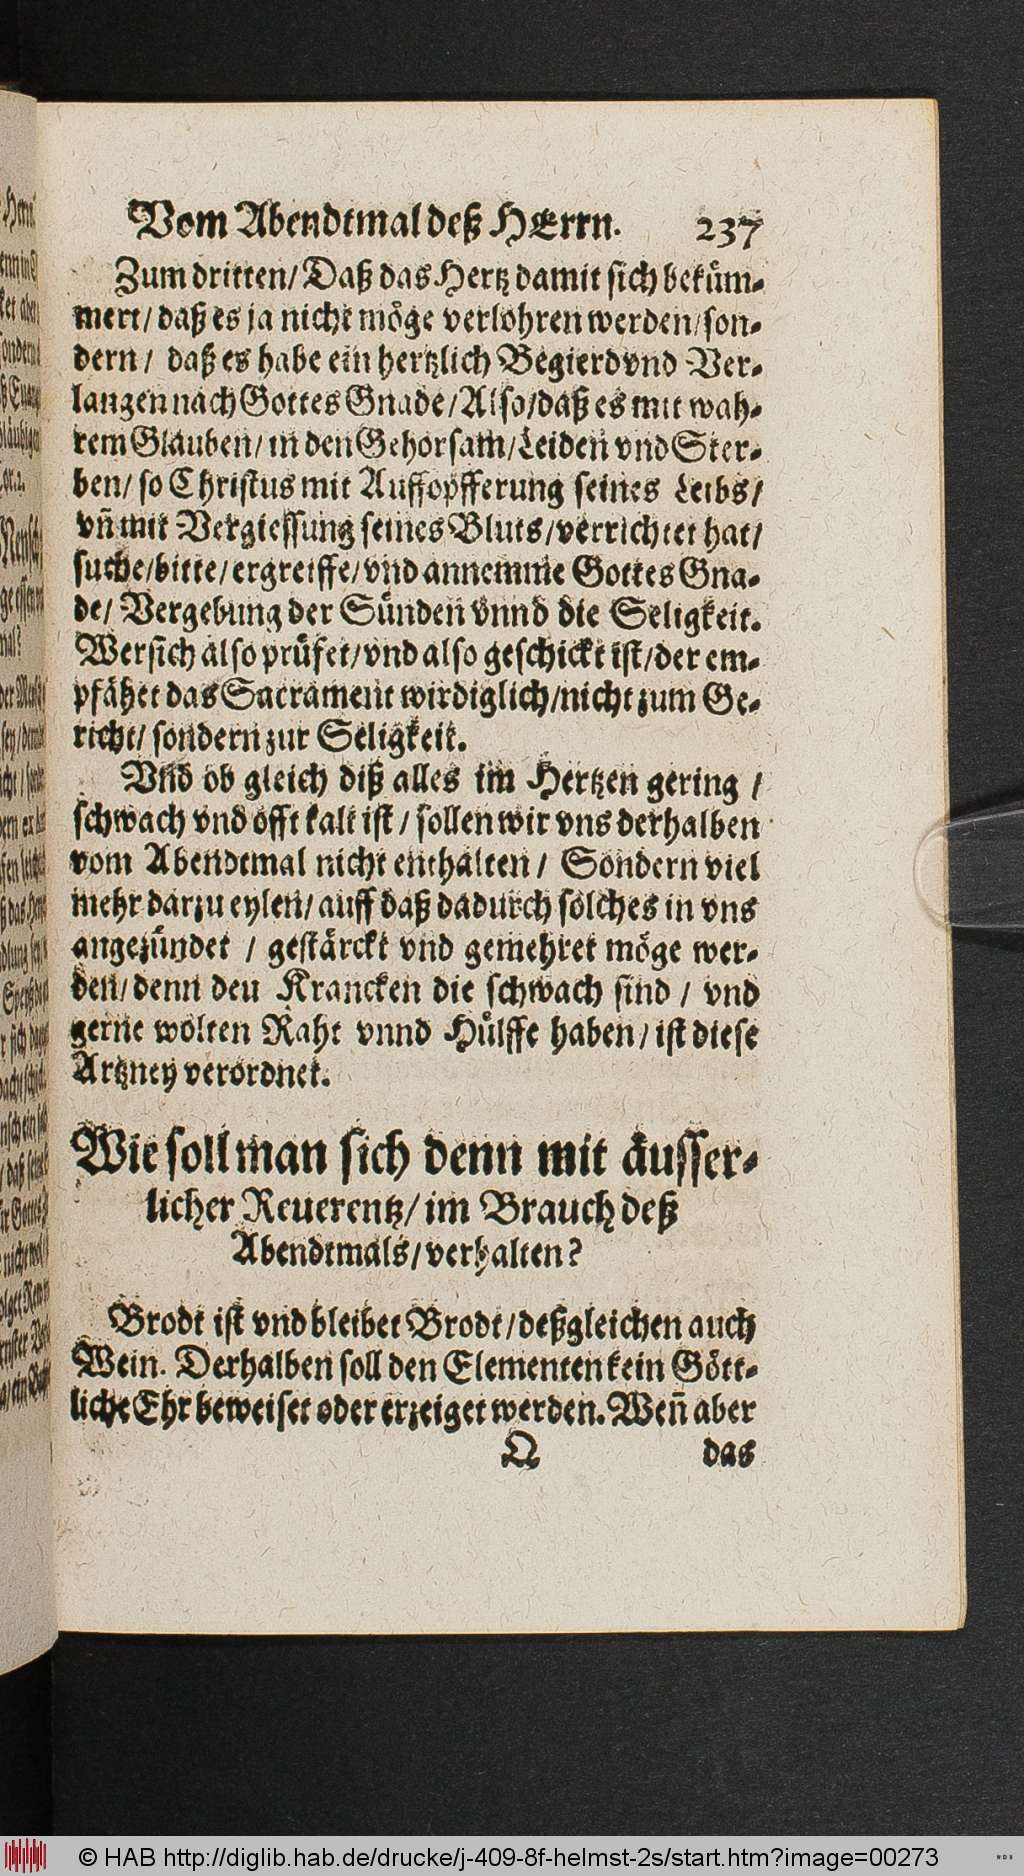 Vom Abendtmal deß HErrn. 237
Zum dritten/ Daß das Hertz damit sich beküm-
mert/ daß es ja nicht möge verlohren werden/ son-
dern/ daß es habe ein hertzlich Begierd vnd Ver-
langen nach Gottes Gnade/ Also/ daß es mit wah-
rem Glauben/ in den Gehorsam/ Leiden vnd Ster-
ben/ so Christus mit Auffopfferung seines Leibs/
vñ mit Vergiessung seines Bluts/ verrichtet hat/
suche/ bitte/ ergreiffe/ vnd annemme Gottes Gna-
de/ Vergebung der Sünden vnnd die Seligkeit.
Wer sich also prüfet/ vnd also geschickt ist/ der em-
pfähet das Sacrament wirdiglich/ nicht zum Ge-
richt/ sondern zur Seligkeit.
Vnd ob gleich diß alles im Hertzen gering /
schwach vnd offt kalt ist / sollen wir vns derhalben
vom Abendtmal nicht enthalten / Sondern viel
mehr darzu eylen/ auff daß dadurch solches in vns
angezündet / gestärckt vnd gemehret möge wer-
den/ denn deu Krancken die schwach sind / vnd
gerne wolten Raht vnnd Hülffe haben/ ist diese
Artzney verordnet.
Wie soll man sich denn mit äusser-
licher Reuerentz/ im Brauch deß
Abendtmals/ verhalten?
Brodt ist vnd bleibet Brodt/ deßgleichen auch
Wein. Derhalben soll den Elementen kein Gött-
liche Ehr beweiset oder erzeiget werden. Weñ aber
Q das
© HAB http://diglib.hab.de/drucke/j-409-8f-helmst-2s/start.htm?image=00273